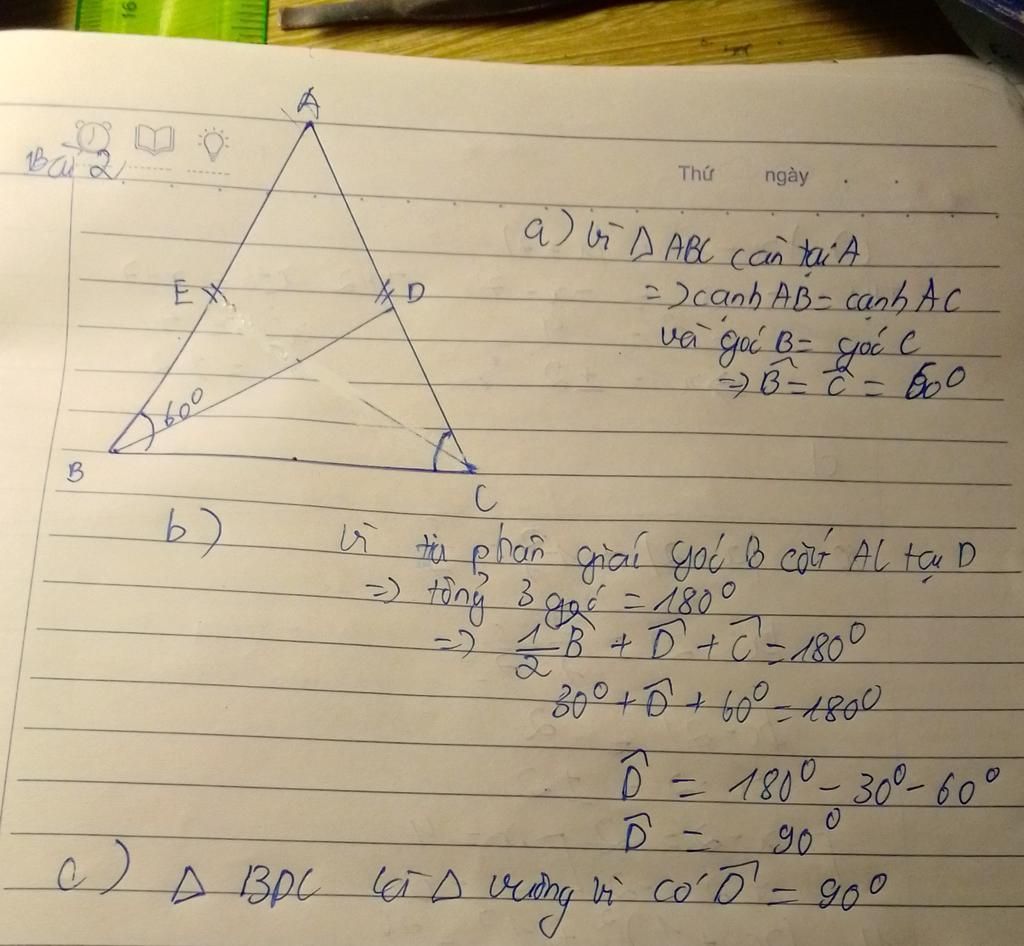 16
Bài 2
Thứ ngày
A
E
D
60⁰
B
C
a) Vì Δ ABC cân tại A
=> cạnh AB = cạnh AC
và góc B = góc C
=> B̂ = Ĉ = 60⁰
b) Vì tia phân giái góc B cắt AC tại D
=> tổng 3 góc = 180⁰
=> 1/2 B̂ + D̂ + Ĉ = 180⁰
30⁰ + D̂ + 60⁰ = 180⁰
D̂ = 180⁰ - 30⁰ - 60⁰
D̂ = 90⁰
c) Δ BDC là Δ vuông vì có D̂ = 90⁰